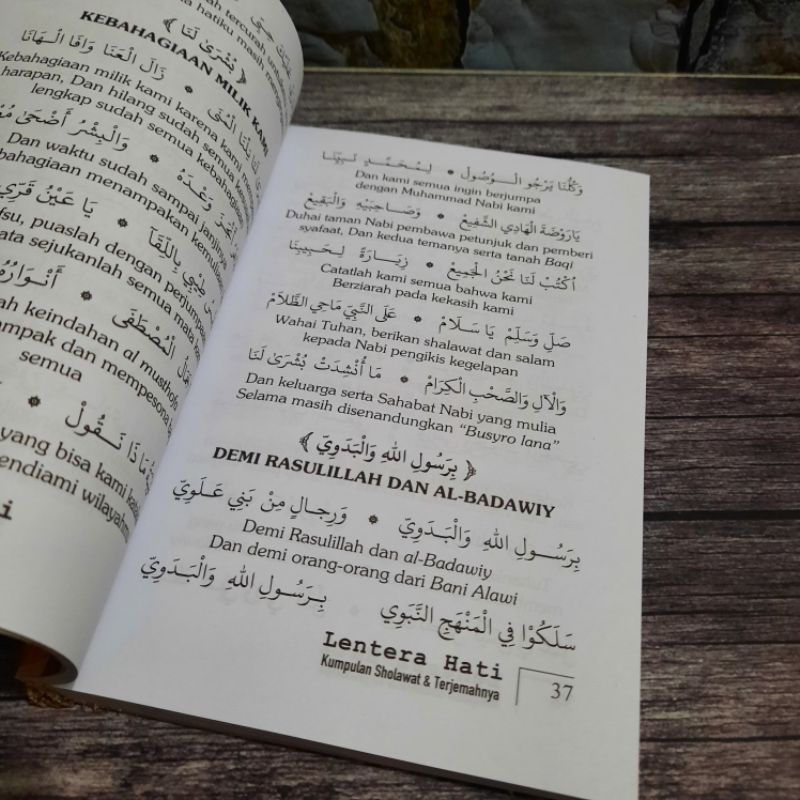 ﴿ بُشْرَى لَنَا ﴾
KEBAHAGIAAN MILIK KAMI
زَالَ الْعَنَا وَافَا الْهَنَا
Kebahagiaan milik kami karena kami
harapan, Dan hilang sudah semua
lengkap sudah semua kebahagiaan
وَالْبِشْرُ أَضْحَىٰ
Dan waktu sudah sampai janjinya
kebahagiaan menampakan
وَعْدَهْ * يَا عَيْنُ قَرِّي
puaslah dengan perjumpaan
sejukanlah semua mata
طِيْبِي بِاللِّقَا
الْمُصْطَفَى * أَنْوَارُهُ
keindahan al musthofa
dan mempesona
semua
مَاذَا نَقُولْ *
yang bisa kami
wilayahmu
وَكُلُّنَا يَرْجُو الْوُصُولْ * لِمُحَمَّدٍ نَبِيِّنَا
Dan kami semua ingin berjumpa
dengan Muhammad Nabi kami
يَارَوْضَةَ الْهَادِي الشَّفِيعْ * وَصَاحِبَيْهِ وَالْبَقِيعْ
Duhai taman Nabi pembawa petunjuk dan pemberi
syafaat, Dan kedua temanya serta tanah Baqi
أُكْتُبْ لَنَا نَحْنُ الْجَمِيعْ * زِيَارَةً لِحَبِيبِنَا
Catatlah kami semua bahwa kami
Berziarah pada kekasih kami
صَلِّ وَسَلِّمْ يَا سَلَامْ * عَلَى النَّبِيْ مَاحِي الظَّلَامْ
Wahai Tuhan, berikan shalawat dan salam
kepada Nabi pengikis kegelapan
وَالْآلِ وَالصَّحْبِ الْكِرَامْ * مَا أُنْشِدَتْ بُشْرَىٰ لَنَا
Dan keluarga serta Sahabat Nabi yang mulia
Selama masih disenandungkan “Busyro lana”
﴿ بِرَسُولِ اللهِ وَالْبَدَوِيّ ﴾
DEMI RASULILLAH DAN AL-BADAWIY
بِرَسُولِ اللهِ وَالْبَدَوِيّ * وَرِجَالٍ مِنْ بَنِي عَلَوِيّ
Demi Rasulillah dan al-Badawiy
Dan demi orang-orang dari Bani Alawi
سَلَكُوْا فِي الْمَنْهَجِ النَّبَوِي بِرَسُولِ اللهِ وَالْبَدَوِيّ
Lentera Hati
Kumpulan Sholawat & Terjemahnya
37